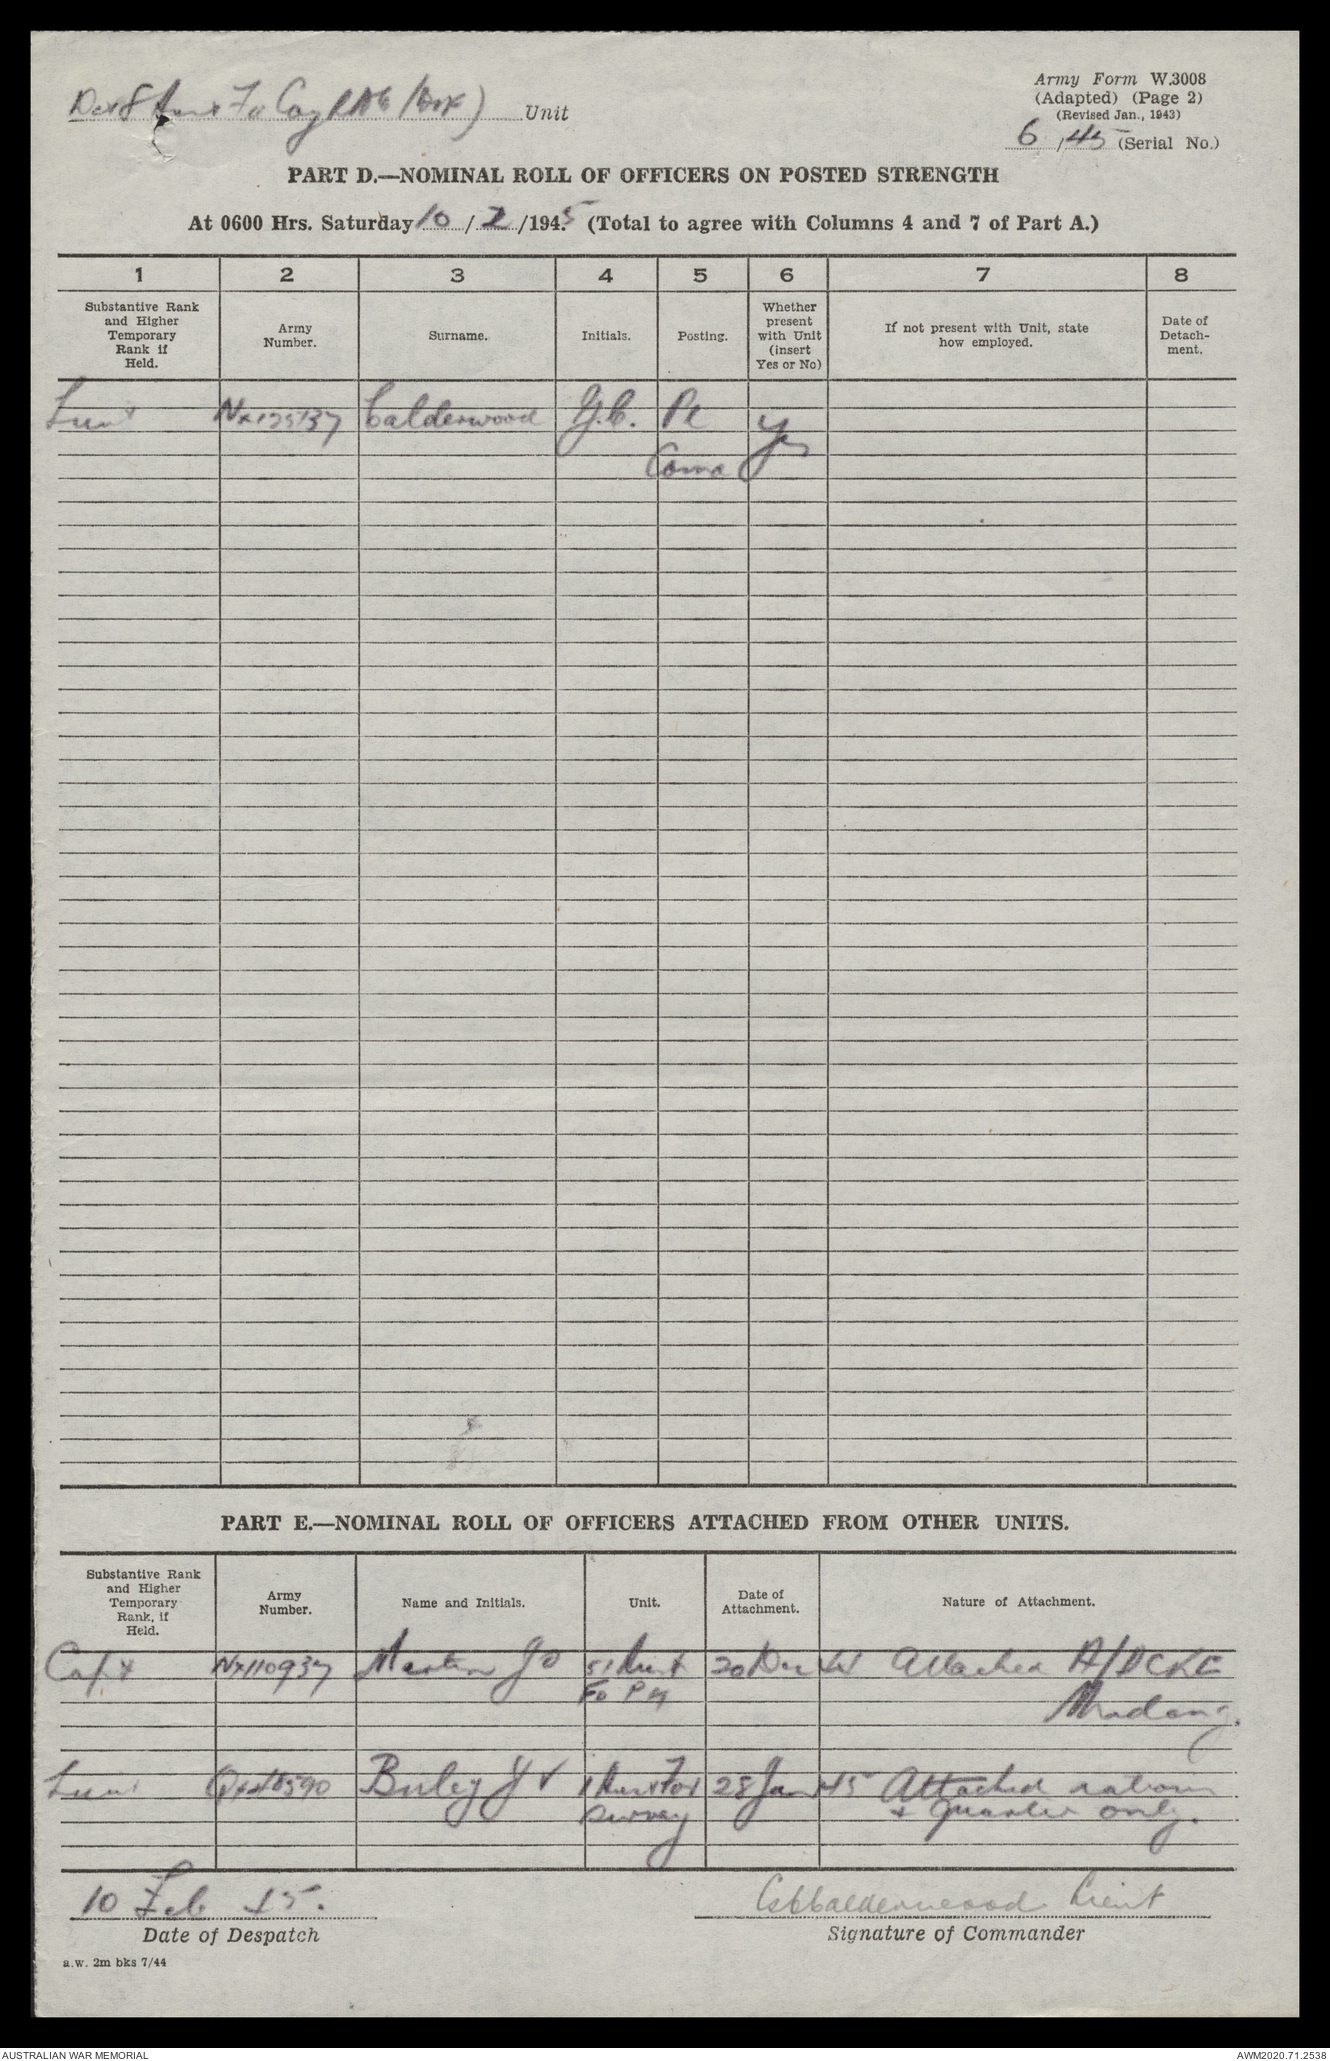 Unit
Army Form W.3008
(Adapted) (Page 2)
(Revised Jan., 1943)
6 / 45 (Serial No.)
PART D.—NOMINAL ROLL OF OFFICERS ON POSTED STRENGTH
At 0600 Hrs. Saturday 10 / 2 /1945 (Total to agree with Columns 4 and 7 of Part A.)
1 2 3 4 5 6 7 8
Substantive Rank and Higher Temporary Rank if Held. Army Number. Surname. Initials. Posting. Whether present with Unit (insert Yes or No) If not present with Unit, state how employed. Date of Detach-ment.
Lieut NX125137 Calderwood G.C. Pl Yes
Comd
PART E.—NOMINAL ROLL OF OFFICERS ATTACHED FROM OTHER UNITS.
Substantive Rank and Higher Temporary Rank, if Held. Army Number. Name and Initials. Unit. Date of Attachment. Nature of Attachment.
Capt NX110937 Martin 20 Dec 44 Attached A/DCRE
Madang.
Lieut 1 Aust For 28 Jan 45 Attached rations
Survey + quarter only.
10 Feb 45.
Calderwood Lieut
Date of Despatch
Signature of Commander
a.w. 2m bks 7/44
AUSTRALIAN WAR MEMORIAL
AWM2020.71.2538